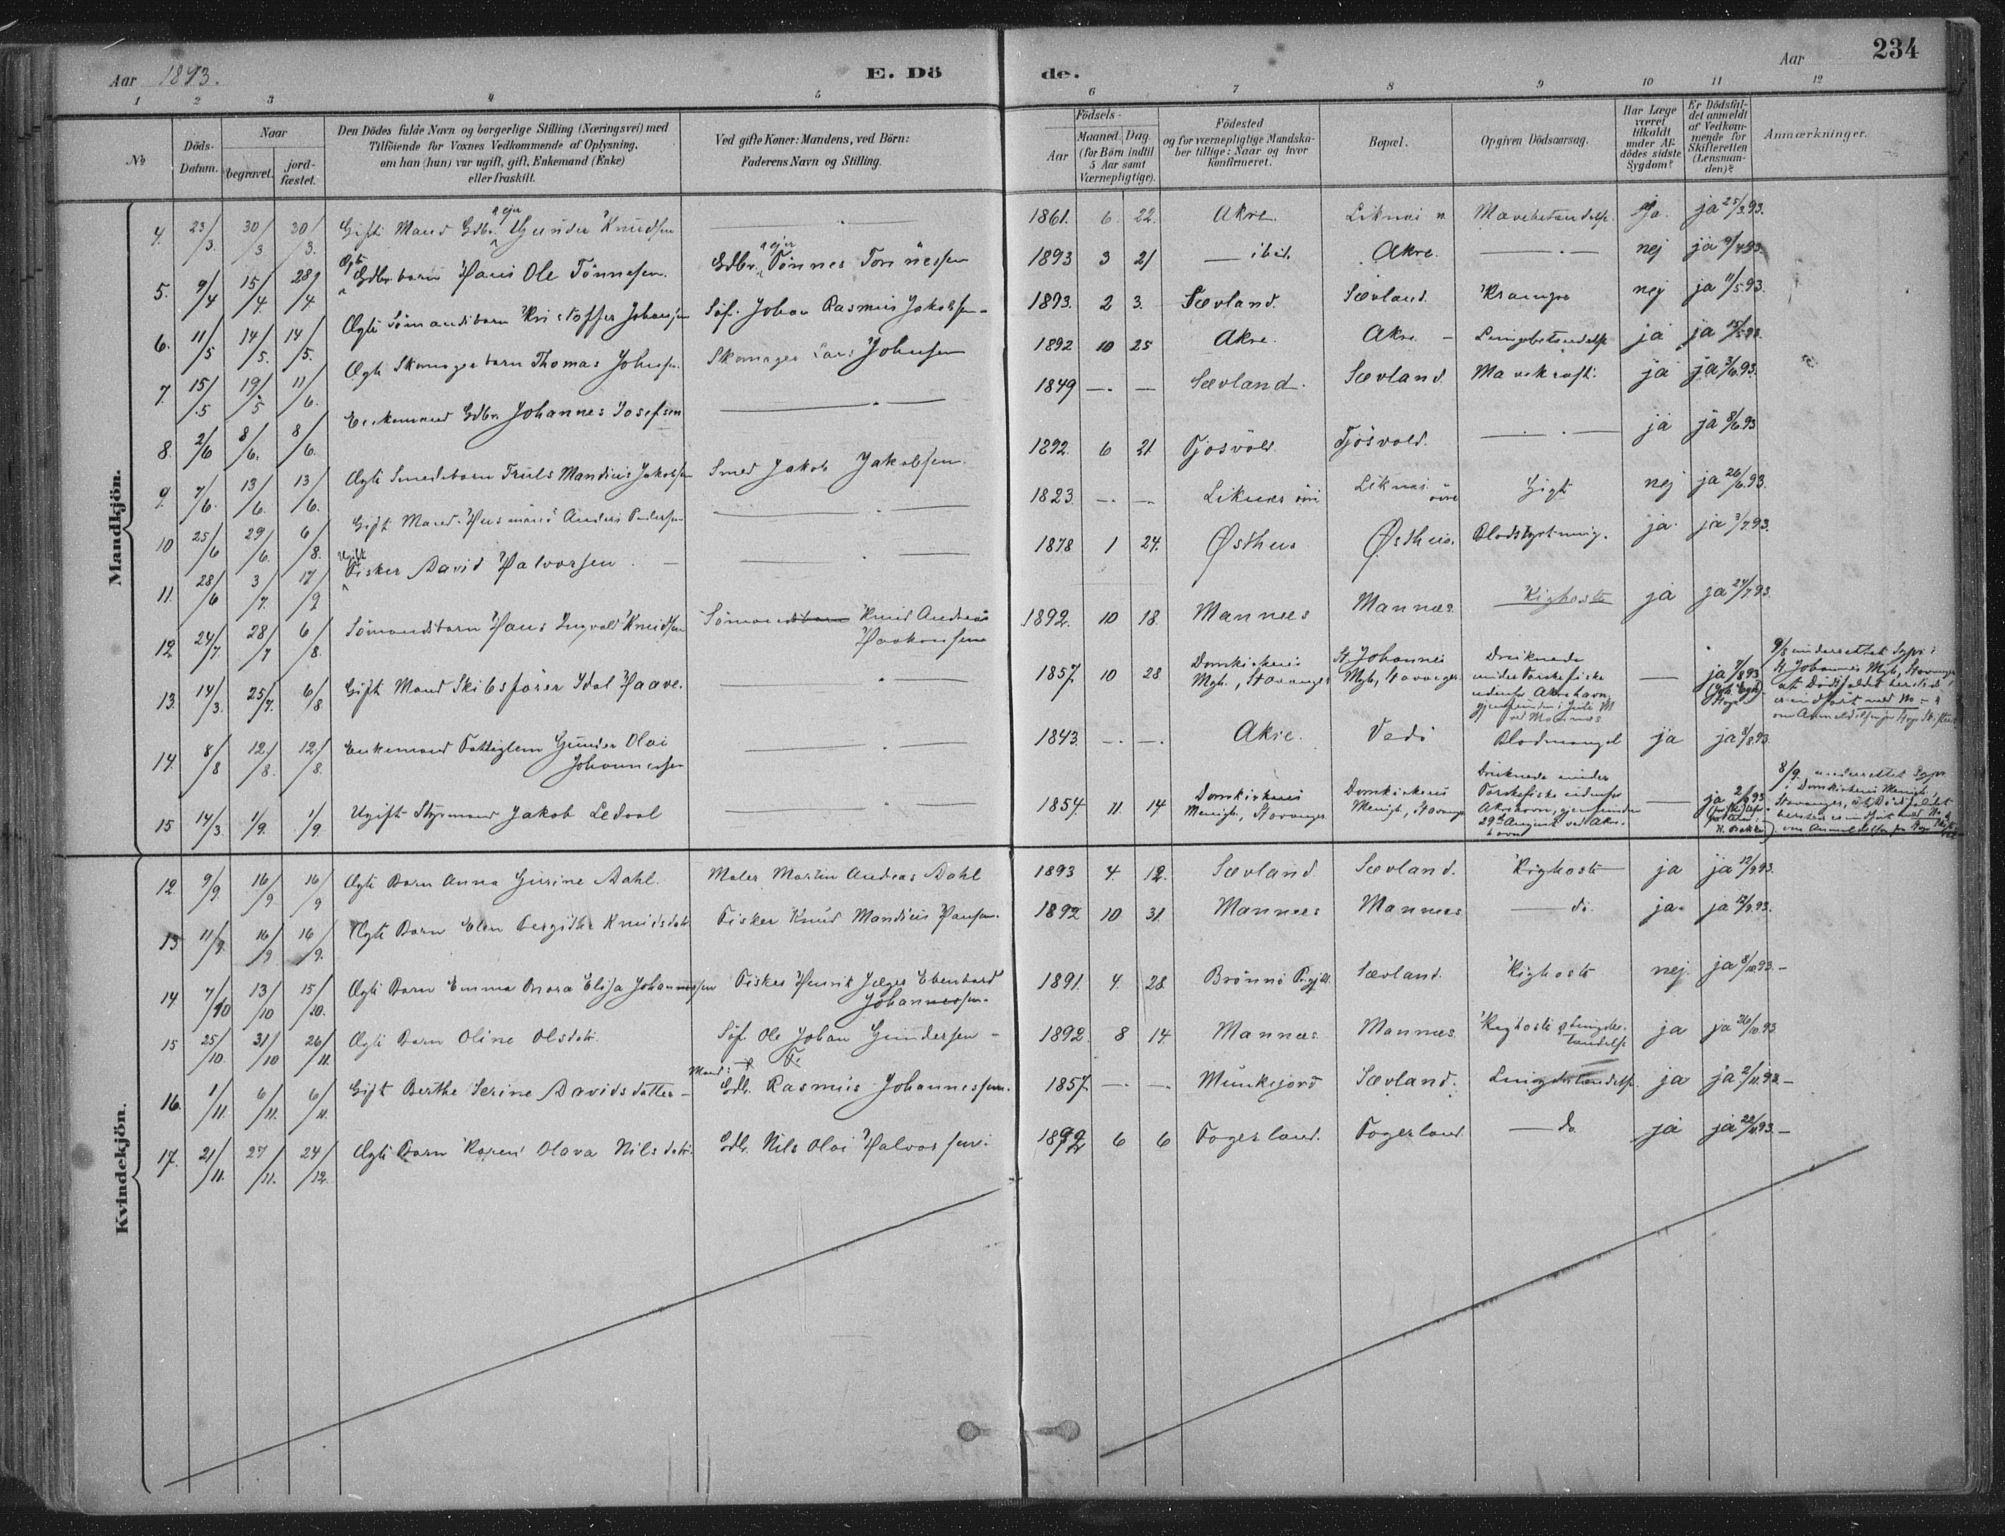 Aar 1893.
E. Dö
de.
Aar
234
1 2 3 4 5 6 7 8 9 10 11 12
No
Döds-Datum.
Naar
begravet.
jord-fæstet.
Den Dödes fulde Navn og borgerlige Stilling (Næringsvei) med
Tilföiende for Voxnes Vedkommende af Oplysning,
om han (hun) var ugift, gift, Enkemand (Enke)
eller fraskilt.
Ved gifte Koner: Mandens, ved Börn:
Faderens Navn og Stilling.
Födsels-
Aar
Maaned Dag
(for Börn indtil
5 Aar samt
Værnepligtige).
Födested
og for værnepligtige Mandska-
ber tillige: Naar og hvor
konfirmeret.
Bopæl.
Opgiven Dödsaarsag.
Har Læge
været
tilkaldt
under Af-
dödes sidste
Sygdom?
Er Dödsfal-
det anmeldt
af Vedkom-
mende for
Skifteretten
(Lensman-
den)?
Anmærkninger.
Mandkjön.
4. 23/3. 30/3 30/3. Gift Mand Gdbr. ejer Gunder Knudsen 1861. 6. 22. Akre Liknæs n Mavebetændelse ja. ja 25/3.93.
5. 9/4 15/4. 28/4 Ægte Gdbr barn Hans Ole Tönnesen. Gdbr. ejer Tönnes Tönnessen 1893 3 21 ibid. Akre. nej ja 9/4.93
6. 11/5 14/5. 14/5. Ægte Sömandsbarn Kristoffer Johansen Söf. Johan Rasmus Jakobsen 1893. 2 3. Sævland. Sævland. Krampe nej ja 11/5.93.
7. 15/5 19/5 11/6. Ægte Skomagerbarn Thomas Johnsen. Skomager Lars Johnsen 1892 10 25 Akre. Akre Lungebetændelse ja ja 15/5.93.
8. 2/6 8/6. 8/6. Enkemand Gdbr. Johannes Josefsen 1849 Sævland. Sævland. Mavekræft. ja ja 3/6.93.
9. 7/6. 13/6. 13/6. Ægte Smedebarn Truls Mandius Jakobsen Smed Jakob Jakobsen. 1892. 6 21 Tjösvold Tjösvold. ja ja 8/6.93
10 25/6 29/6. 6/8. Gift Mand Husmand Anders Pedersen 1823. Liknæs övre Liknæs övre Gigt nej ja 26/6.93.
11. 28/6 3/7. 17/9 Ugift Fisker David Halvorsen 1878 1 24. Østhus Østhus. Blodstyrtning. ja. ja 3/7.93.
12. 24/7. 28/7 6/8. Sömandsbarn Hans Ingvald Knudsen Sömand Knud Andreas Haakonsen 1892. 10 18. Mannes Mannes. Kighoste ja ja 24/7.93.
13. 14/3. 25/7. 6/8 Gift Mand Skibsförer Idal Haave. 1857. 10 28 Domkirkens Mgh., Stavanger St. Johannes Mgh, Stavanger Druknede under Torskefiske udenfor Akrehavn, gjenfunden i Juli M ved Mannes ja 7/8 93
9/8 underrettet Sgpr i St. Johannes Mgh, Stavanger, at Dödsfaldet herstæds er indfört med No
14. 8/8 12/8. 12/8. Enkemand Fattiglem Gunder Olai Johannesen 1843. Akre. Vedö Blodmangel ja ja 8/8.93.
15 14/3. 1/9. 1/9. Ugift Styrmand Jakob Ledaal 1854. 11. 14 Domkirkens Menigh., Stavanger Domkirkens Menigh., Stavanger Druknede under Torskefiske udenfor Akrehavn, gjenfunden 29de August ved Akrehavn ja 2/9 93
8/9. underrettet Sgpr i Domkirkens Menigh., Stavanger, at Dödsfaldet herstæds er indfört med No
Kvindekjön.
12 9/9. 16/9 16/9 Ægte Barn Anna Gurine Dahl. Maler Martin Andreas Dahl 1893 4. 12. Sævland. Sævland. Kighoste ja ja 12/9.93.
13 11/9. 16/9 16/9. Ægte Barn Elen Bergithe Knudsdtr Fisker Knud Mandius Hansen. 1892 10 31. Mannes Mannes do. ja. ja 12/9.93.
14 7/10 13/10 15/10. Ægte Barn Emma Nora Elisa Johannessen Fisker Henrik Jæger Ebenhard Johannessen. 1891. 4. 28. Brönnö Prgjld. Sævland. Kighoste nej. ja 8/10.93.
15 25/10. 31/10 26/11. Ægte Barn Oline Olsdtr. Söf. Ole Johan Gundersen 1892. 8 14. Mannes. Mannes. Kighoste & Lungebetændelse ja ja 26/10.93
16. 1/11. 6/11. 6/11. Gift Berthe Serine Davidsdatter Mand: Gdb. Rasmus Johannessen. 1857. Munkejord Sævland. Lungebetændelse. ja ja 2/11.93.
17. 21/11. 27/11. 24/12. Ægte Barn Karen Olava Nilsdtr. Gdb. Nils Olai Halvorsen. 1892 6 6 Fogerland. Fogerland do ja ja 22/11.93.